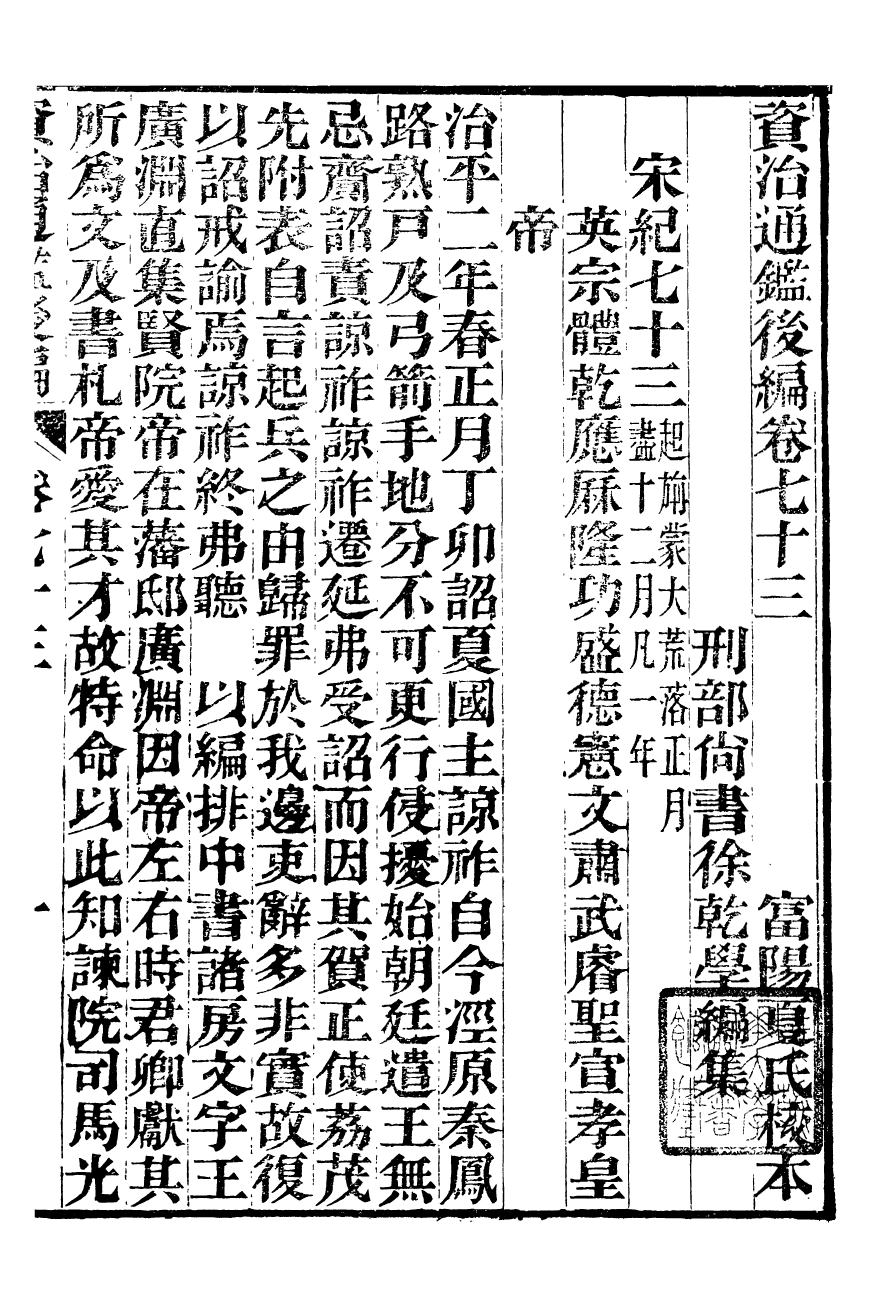 資治通鑑後編卷七十三　富陽夏氏校本
刑部尙書徐乾學編集
宋紀七十三起旃蒙大荒落正月盡十二月凡一年
英宗體乾應厤隆功盛德憲文肅武睿聖宣孝皇
帝
治平二年春正月丁卯詔夏國主諒祚自今涇原秦鳳
路熟戸及弓箭手地分不可更行侵擾始朝廷遣王無
忌齎詔責諒祚諒祚遷延弗受詔而因其賀正使荔茂
先附表自言起兵之由歸罪於我邊吏辭多非實故復
以詔戒諭焉諒祚終弗聽　以編排中書諸房文字王
廣淵直集賢院帝在藩邸廣淵因帝左右時君卿獻其
所爲文及書札帝愛其才故特命以此知諫院司馬光
資治通鑑後編　卷七十三　一